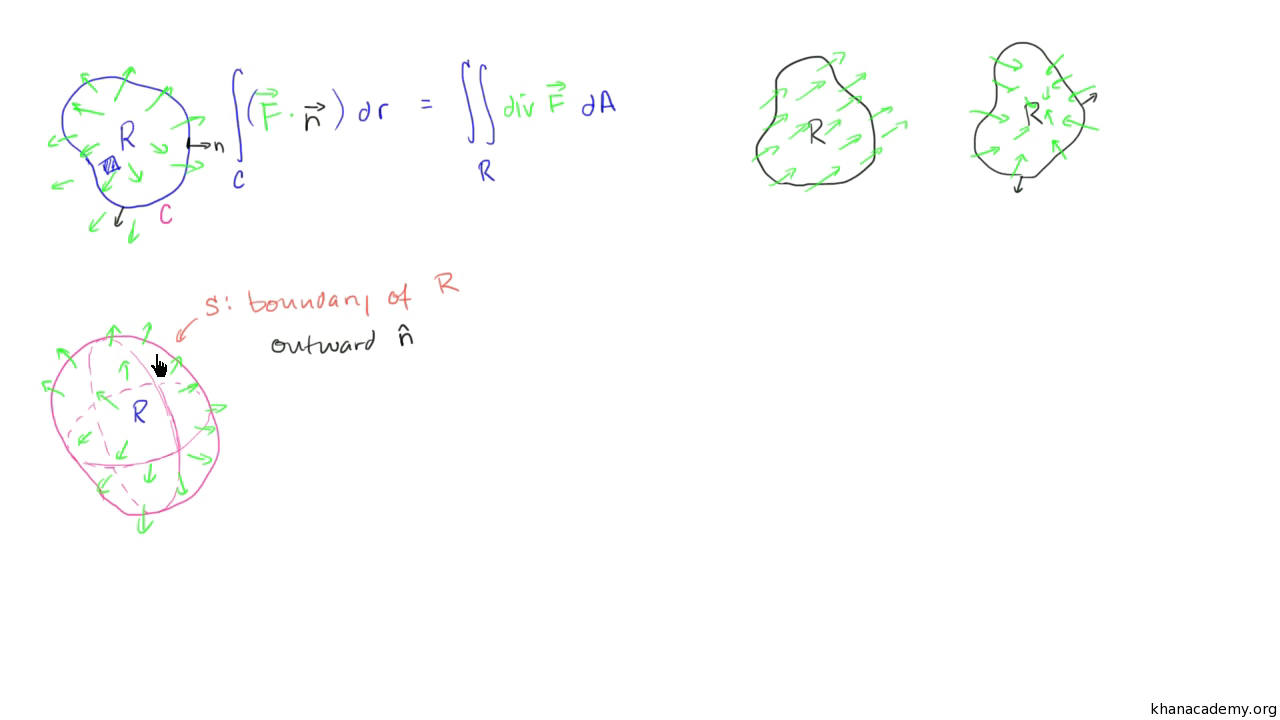 R
n
C
∫ (F⃗ · n⃗) dr = ∬ div F⃗ dA
C
R
R
R
S: boundary of R
outward n̂
R
khanacademy.org